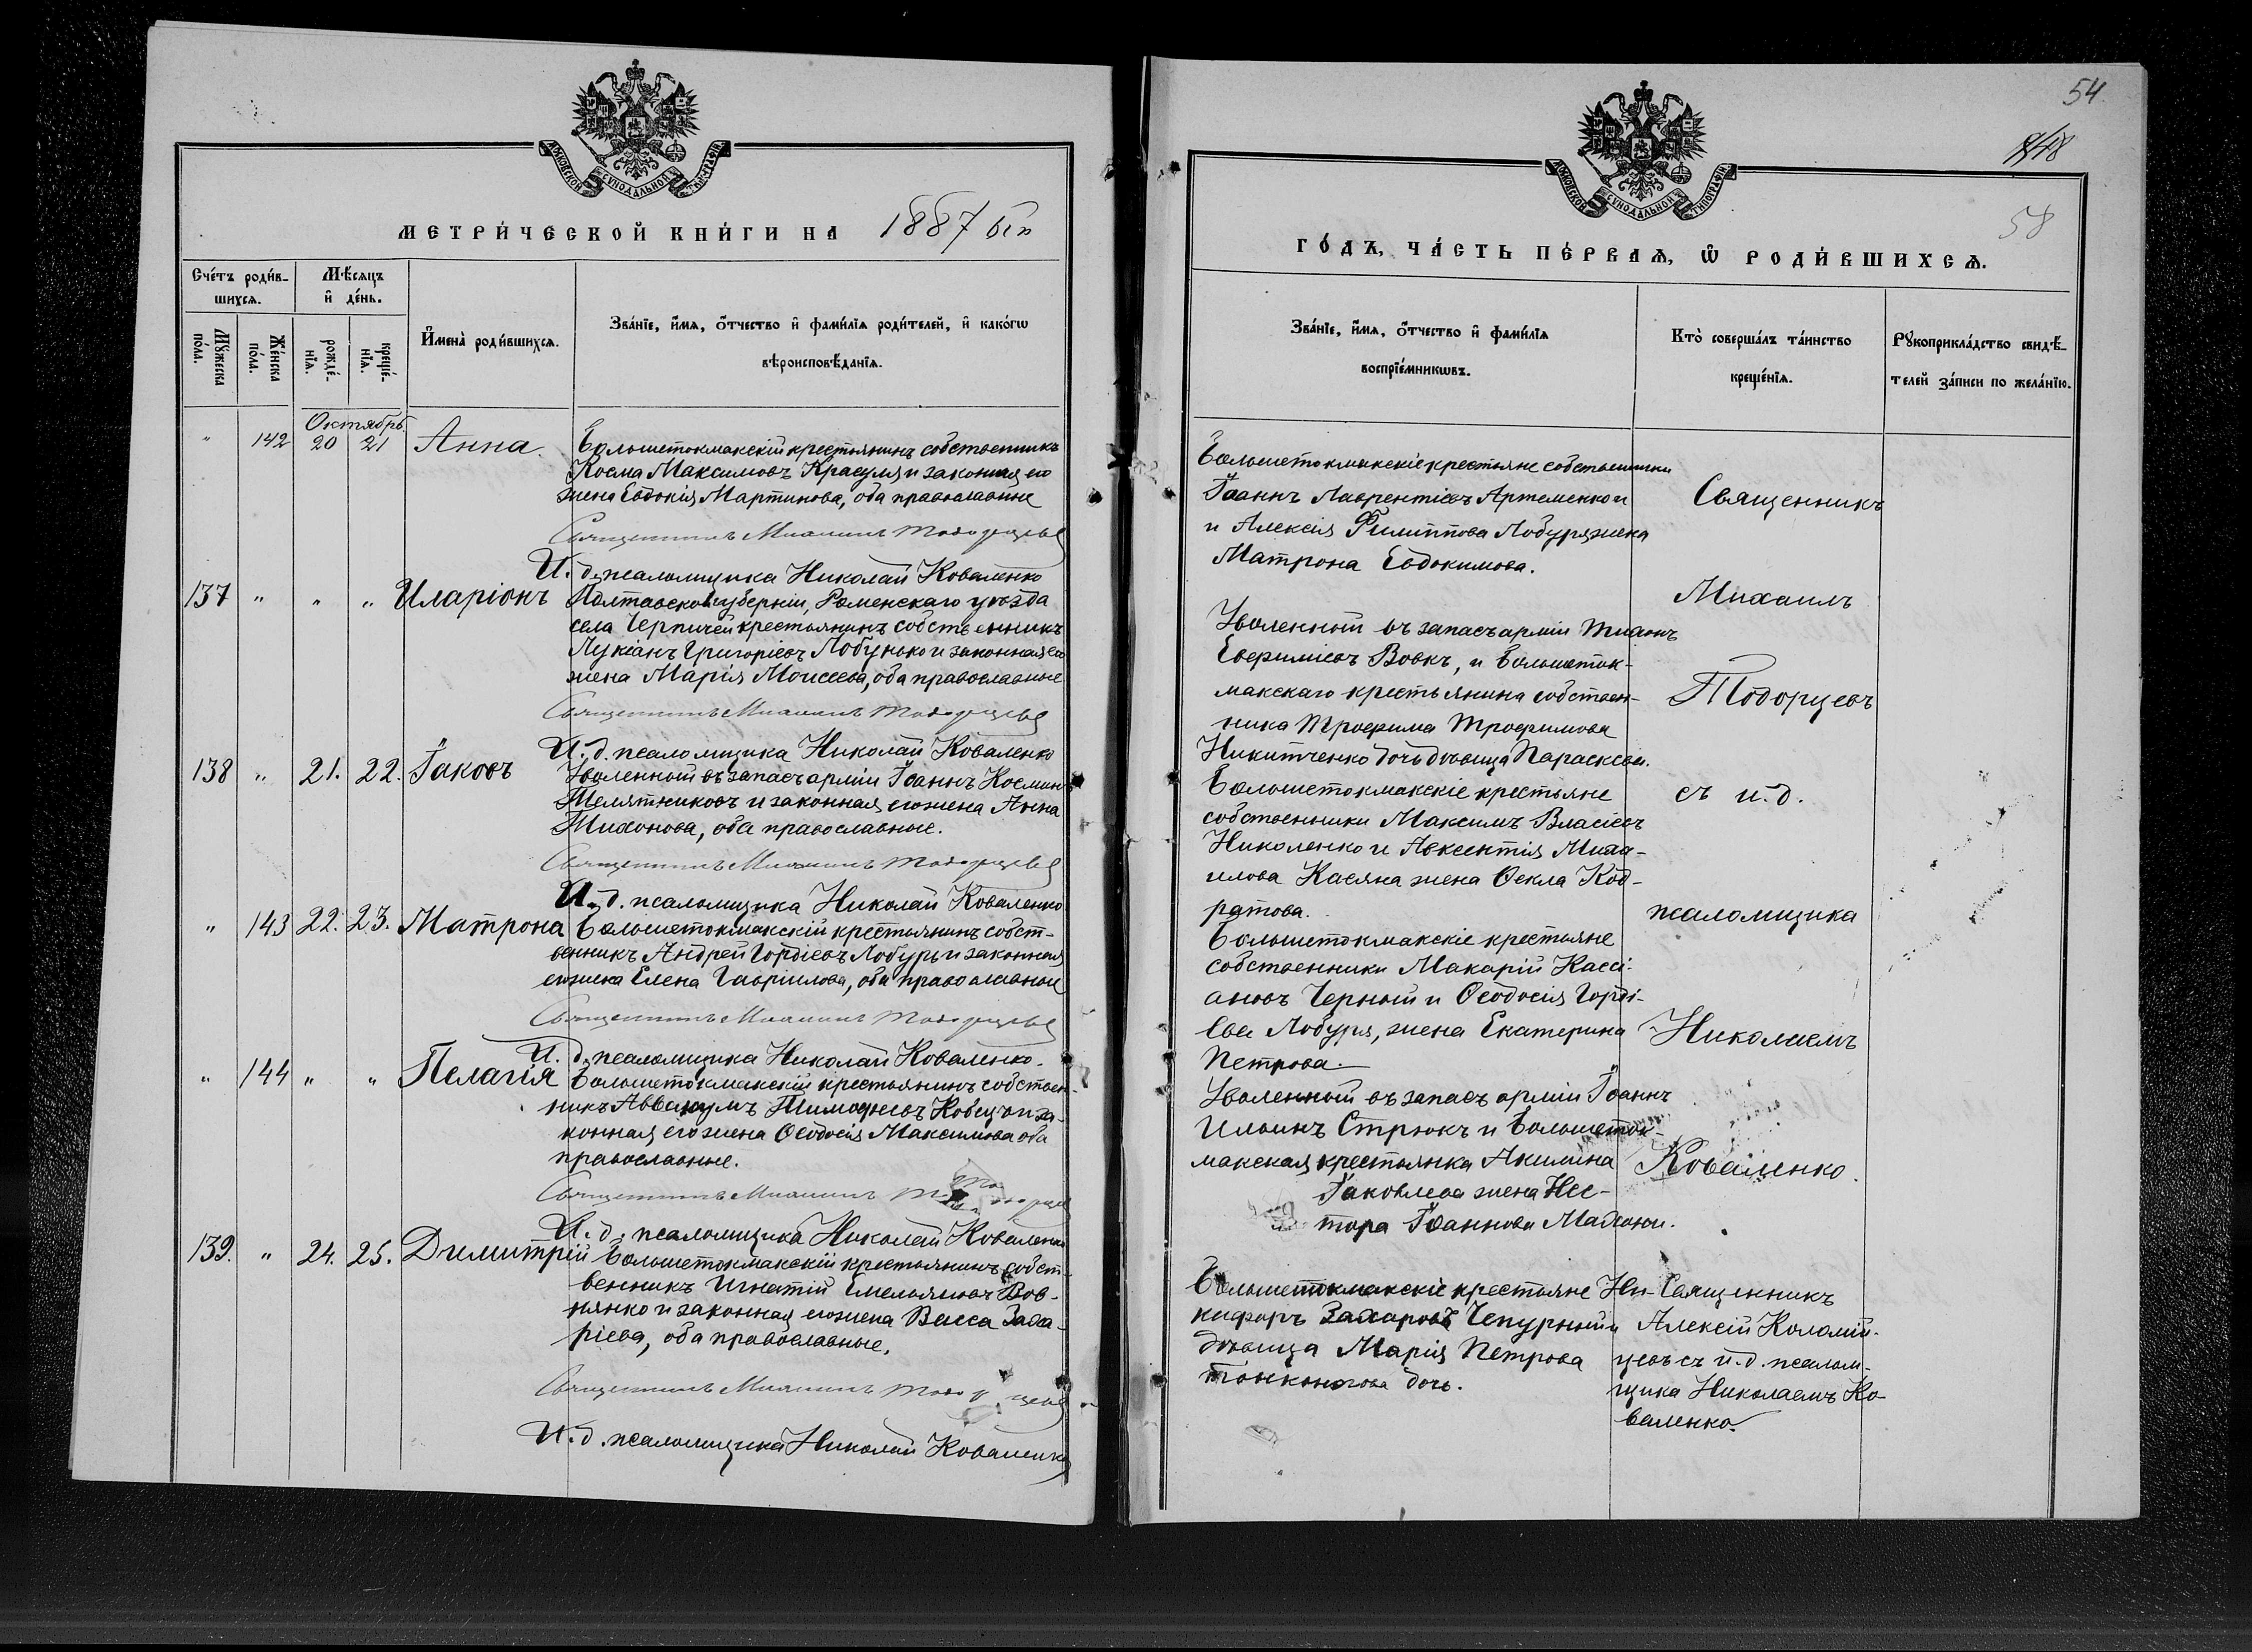 54
148
58
МОСКОВСКОЙ СѴНОДАЛЬНОЙ ТИПОГРАФІИ
МЕТРИ́ЧЕСКОЙ КНИ́ГИ НА 1887 й
Сче́тъ роди́в-
шихсѧ.
Мѣ́сѧцъ
и҆ де́нь.
Мꙋ́жеска
по́ла.
Же́нска
по́ла.
рожде́-
нїѧ.
креще́-
нїѧ.
И҆мена̀ роди́вшихсѧ.
Зва́нїе, и҆́мѧ, о҆́тчество и҆ фами́лїѧ роди́телей, и҆ како́гѡ
вѣроисповѣ́данїѧ.
Октябрь
" 142 20 21 Анна.
Большетокмакскій крестьянинъ собственникъ
Косма Максимовъ Красуля и законная его
жена Евдокія Мартинова, оба православные
Священникъ Михаилъ Тодорцевъ
И. д. псаломщика Николай Коваленко
137 " " " Иларіонъ Полтавской губерніи, Роменскаго уѣзда
села Черпичей крестьянинъ собственникъ
Лукіанъ Григоріевъ Лобунько и законная его
жена Марія Моисеева, оба православные
Священникъ Михаилъ Тодорцевъ
И. д. псаломщика Николай Коваленко
138 " 21. 22. Іаковъ Уволенный въ запасъ арміи Іоаннъ Косминъ
Телятниковъ и законная его жена Анна
Тихонова, оба православные.
Священникъ Михаилъ Тодорцевъ
И. д. псаломщика Николай Коваленко
" 143 22. 23. Матрона Большетокмакскій крестьянинъ собст-
венникъ Андрей Гордіевъ Лобурь и законная
его жена Елена Гавріилова, оба православные
Священникъ Михаилъ Тодорцевъ
И. д. псаломщика Николай Коваленко.
" 144 " " Пелагія Большетокмакскій крестьянинъ собствен-
никъ Аввакумъ Тимоѳеевъ и за-
конная его жена Ѳеодосія Максимова оба
православные.
Священникъ Михаилъ Тодорцевъ
И. д. псаломщика Николай Коваленко
139. " 24. 25. Димитрій Большетокмакскій крестьянинъ собст-
венникъ Игнатій Емельяновъ Вов-
нянко и законная его жена Васса Заха-
ріева, оба православные.
Священникъ Михаилъ Тодорцевъ
И. д. псаломщика Николай Коваленко
МОСКОВСКОЙ СѴНОДАЛЬНОЙ ТИПОГРАФІИ
ГО́ДЪ, ЧА́СТЬ ПЕ́РВАѦ, Ѡ҆ РОДИ́ВШИХСѦ.
Зва́нїе, и҆́мѧ, о҆́тчество и҆ фами́лїѧ
воспрїе́мникѡвъ.
Кто̀ соверша́лъ та́инство
креще́нїѧ.
Рꙋкоприкла́дство свидѣ́-
телей за́писи по жела́нїю.
Большетокмакскіе крестьяне собственники
Іоаннъ Лаврентіевъ Артеменко и
и Алексія Филиппова Лобуря жена
Матрона Евдокимова.
Уволенный въ запасъ арміи
Евфиміевъ Вовкъ, и Большеток-
макскаго крестьянина собствен-
ника Трофима Трофимова
Никитченко дочь дѣвица Параскева.
Большетокмакскіе крестьяне
собственники Максимъ Власіевъ
Николенко и Авксентія Миха-
илова Касяна жена Ѳекла Код-
ратова.
Большетокмакскіе крестьяне
собственники Макарій Кассі-
ановъ Черный и Ѳеодосія Горді-
ева Лобуря, жена Екатерина
Петрова.
Уволенный въ запасъ арміи Іоаннъ
Ильинъ Стрюкъ и Большеток-
макская крестьянка Акилина
Іаковлева жена Нес-
тора Іоаннова Махони.
Большетокмакскіе крестьяне Ни-
кифоръ Захаровъ Чепурный и
дѣвица Марія Петрова
Тонконогова дочь.
Священникъ
Михаилъ
Тодорцевъ
съ и. д.
псаломщика
Николаемъ
Коваленко.
Священникъ
Алексій Коломій-
цевъ съ и. д. псалом-
щика Николаемъ Ко-
валенко.